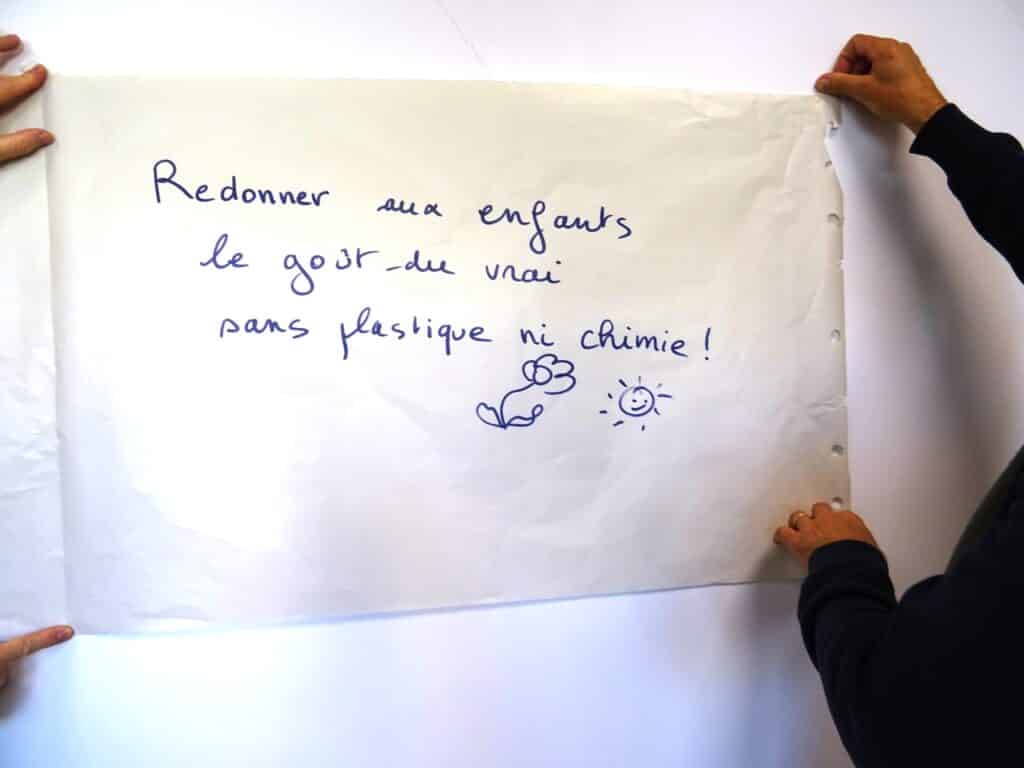 Redonner aux enfants
le goût du vrai
sans plastique ni chimie !